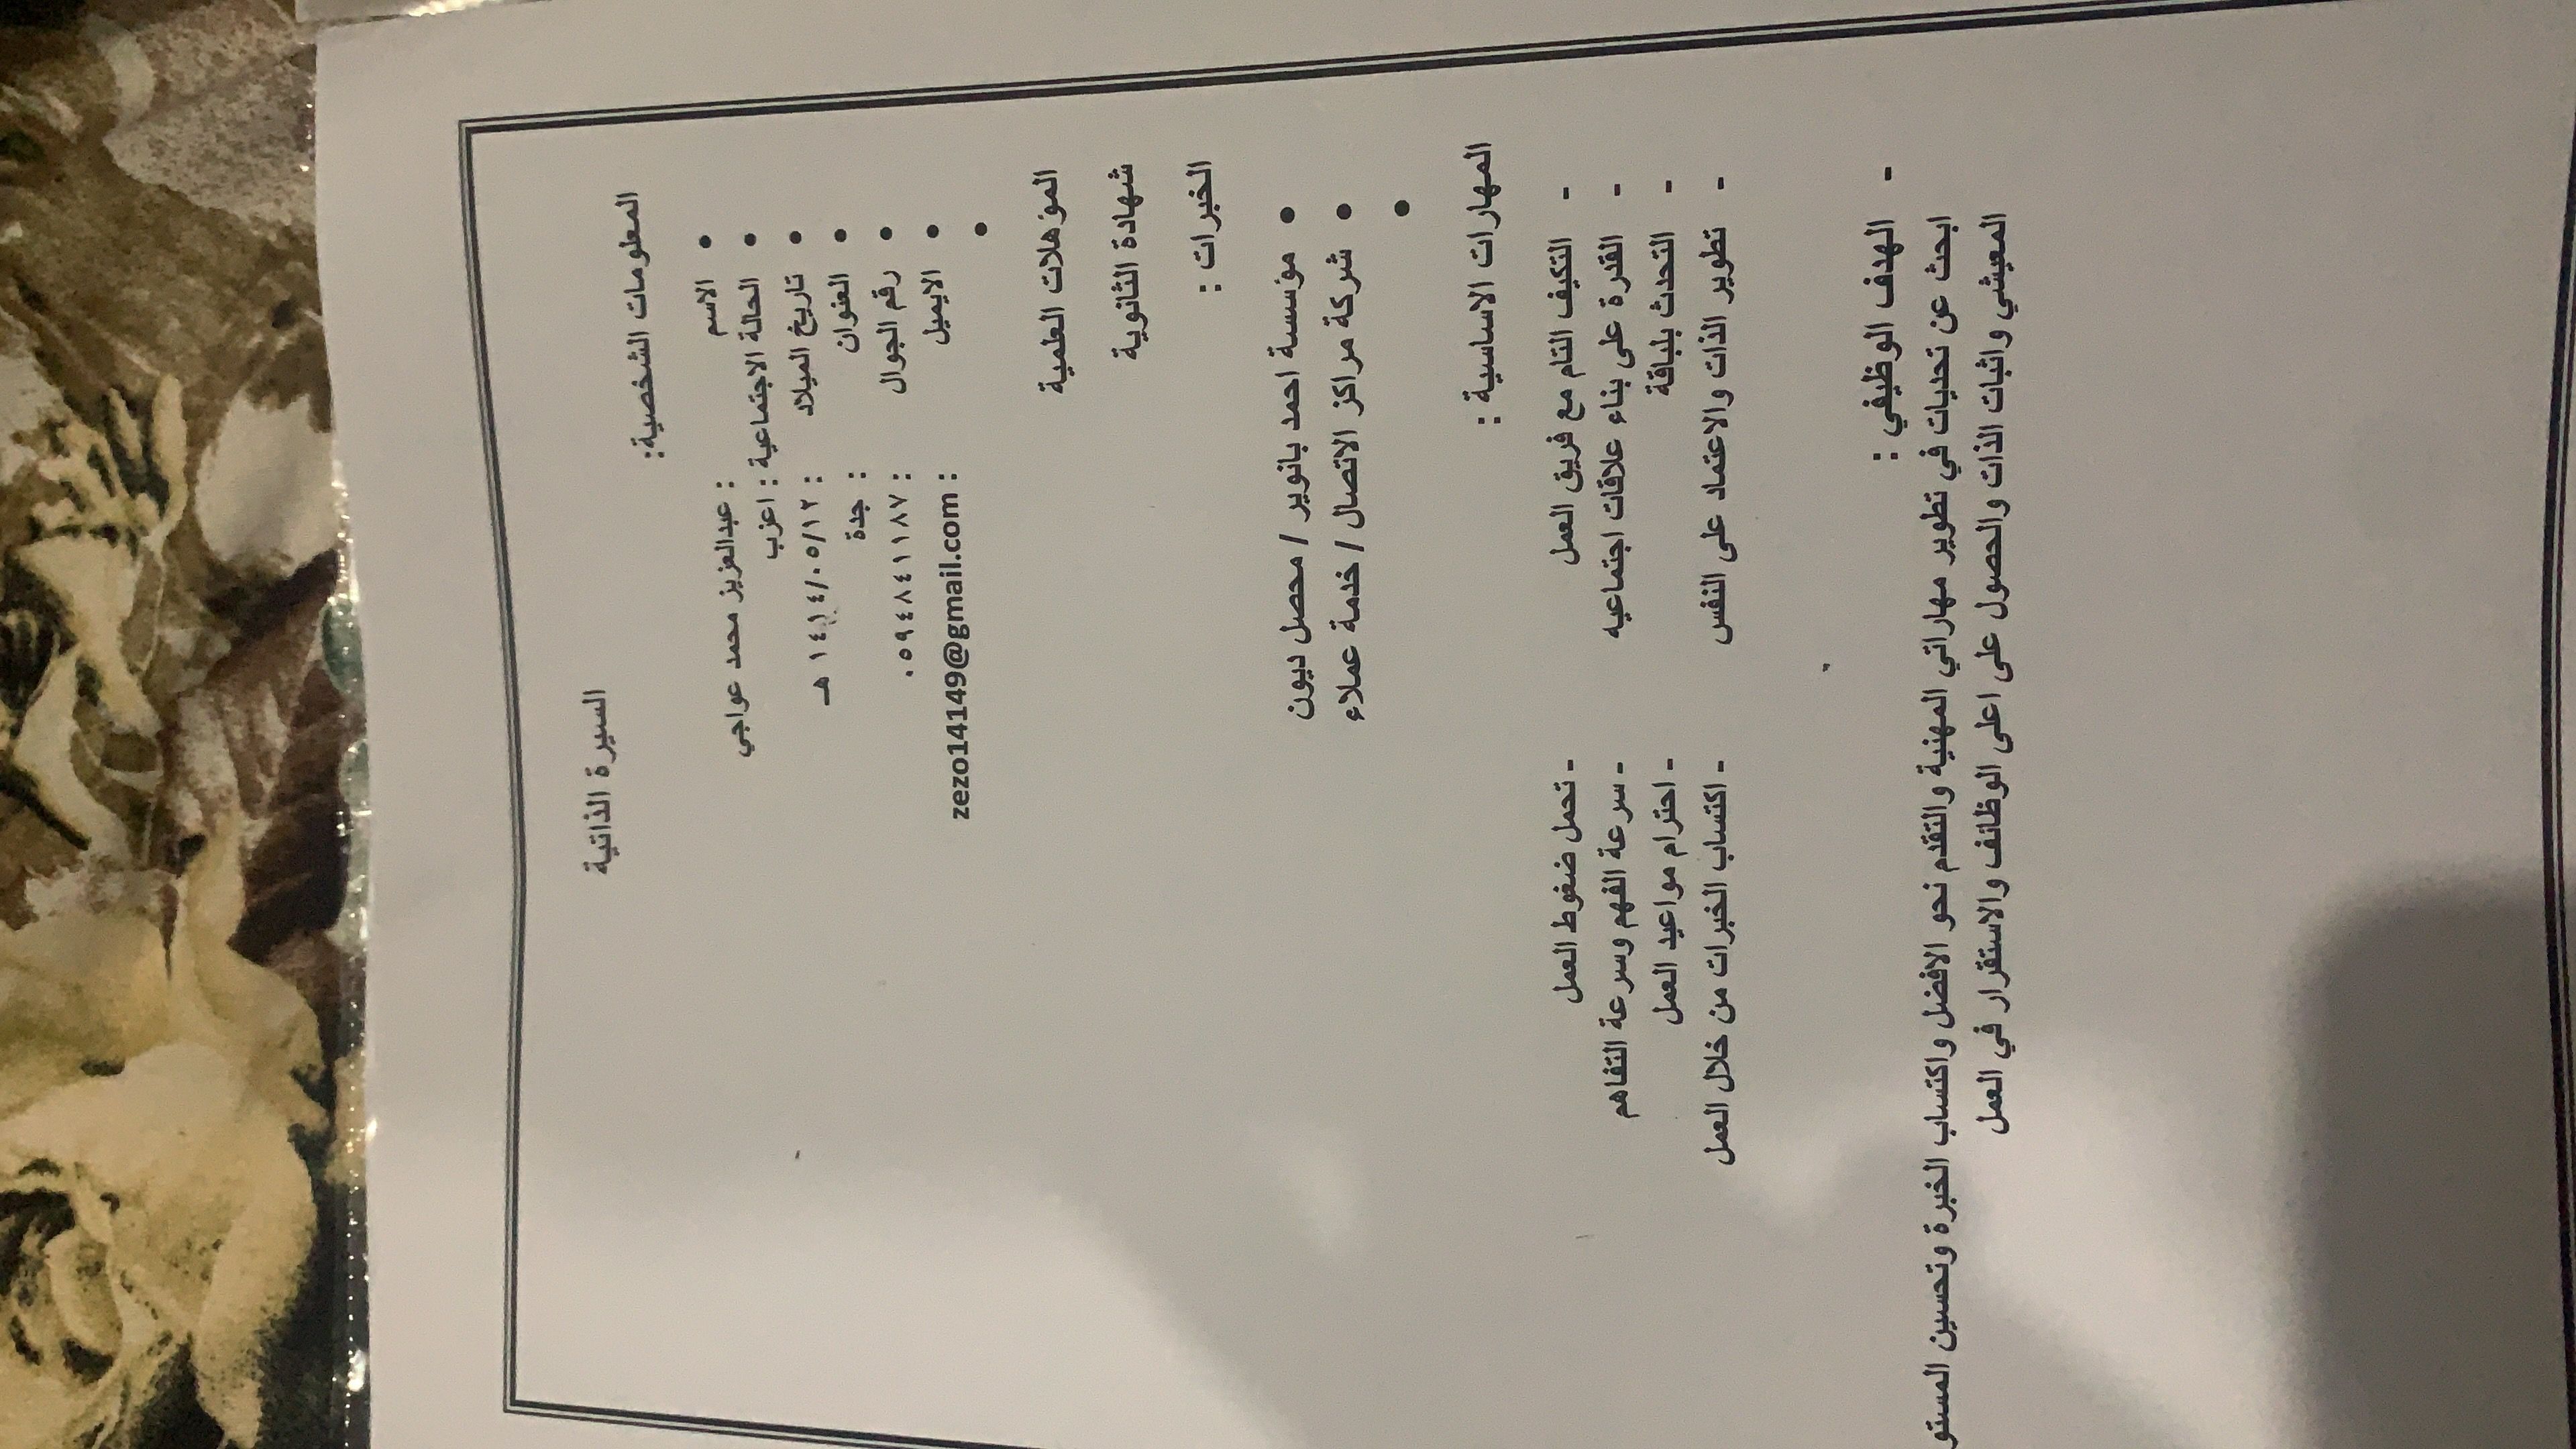 السيرة الذاتية
المعلومات الشخصية:
• الاسم : عبدالعزيز محمد عواجي
• الحالة الاجتماعية : اعزب
• تاريخ الميلاد : ١٤١٤/٠٥/١٢ هـ
• العنوان : جدة
• رقم الجوال : ٠٥٩٤٨٤١١٨٧
• الايميل : zezo14149@gmail.com
•
المؤهلات العلمية
شهادة الثانوية
الخبرات :
• مؤسسة احمد بانوير / محصل ديون
• شركة مراكز الاتصال / خدمة عملاء
•
المهارات الاساسية :
- التكيف التام مع فريق العمل - تحمل ضغوط العمل
- القدرة على بناء علاقات اجتماعيه - سرعة الفهم وسرعة التفاهم
- التحدث بلباقة - احترام مواعيد العمل
- تطوير الذات والاعتماد على النفس - اكتساب الخبرات من خلال العمل
- الهدف الوظيفي :
ابحث عن تحديات في تطوير مهاراتي المهنية والتقدم نحو الافضل واكتساب الخبرة وتحسين المستو
المعيشي واثبات الذات والحصول على اعلى الوظائف والاستقرار في العمل